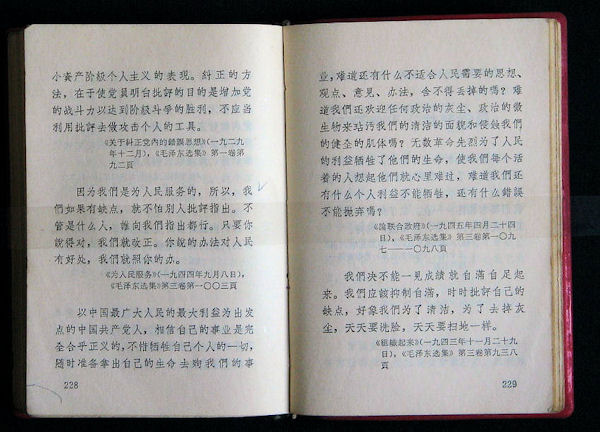 小资产阶級个人主义的表现。糾正的方
法,在于使党員明白批評的目的是增加党
的战斗力以达到阶級斗爭的胜利,不应当
利用批評去做攻击个人的工具。
《关于糾正党內的錯誤思想》(一九二九
年十二月),《毛泽东选集》第一卷第
九二頁
因为我們是为人民服务的,所以,我
們如果有缺点,就不怕別人批評指出。不
管是什么人,誰向我們指出都行。只要你
說得对,我們就改正。你說的办法对人民
有好处,我們就照你的办。
《为人民服务》(一九四四年九月八日),
《毛泽东选集》第三卷第一〇〇三頁
以中国最广大人民的最大利益为出发
点的中国共产党人,相信自己的事业是完
全合乎正义的,不惜牺牲自己个人的一切,
随时准备拿出自己的生命去殉我們的事
228
业,难道还有什么不适合人民需要的思想、
观点、意見、办法,舍不得丢掉的嗎?难
道我們还欢迎任何政治的灰尘、政治的微
生物来玷污我們的清洁的面貌和侵蝕我們
的健全的肌体嗎?无数革命先烈为了人民
的利益牺牲了他們的生命,使我們每个活
着的人想起他們就心里难过,难道我們还
有什么个人利益不能牺牲,还有什么錯誤
不能抛弃嗎?
《論联合政府》(一九四五年四月二十四
日),《毛泽东选集》第三卷第一〇九
七——一〇九八頁
我們决不能一見成績就自滿自足起
来。我們应該抑制自滿,时时批評自己的
缺点,好象我們为了清洁,为了去掉灰
尘,天天要洗脸,天天要扫地一样。
《組織起来》(一九四三年十一月二十九
日),《毛泽东选集》第三卷第九三八
頁
229